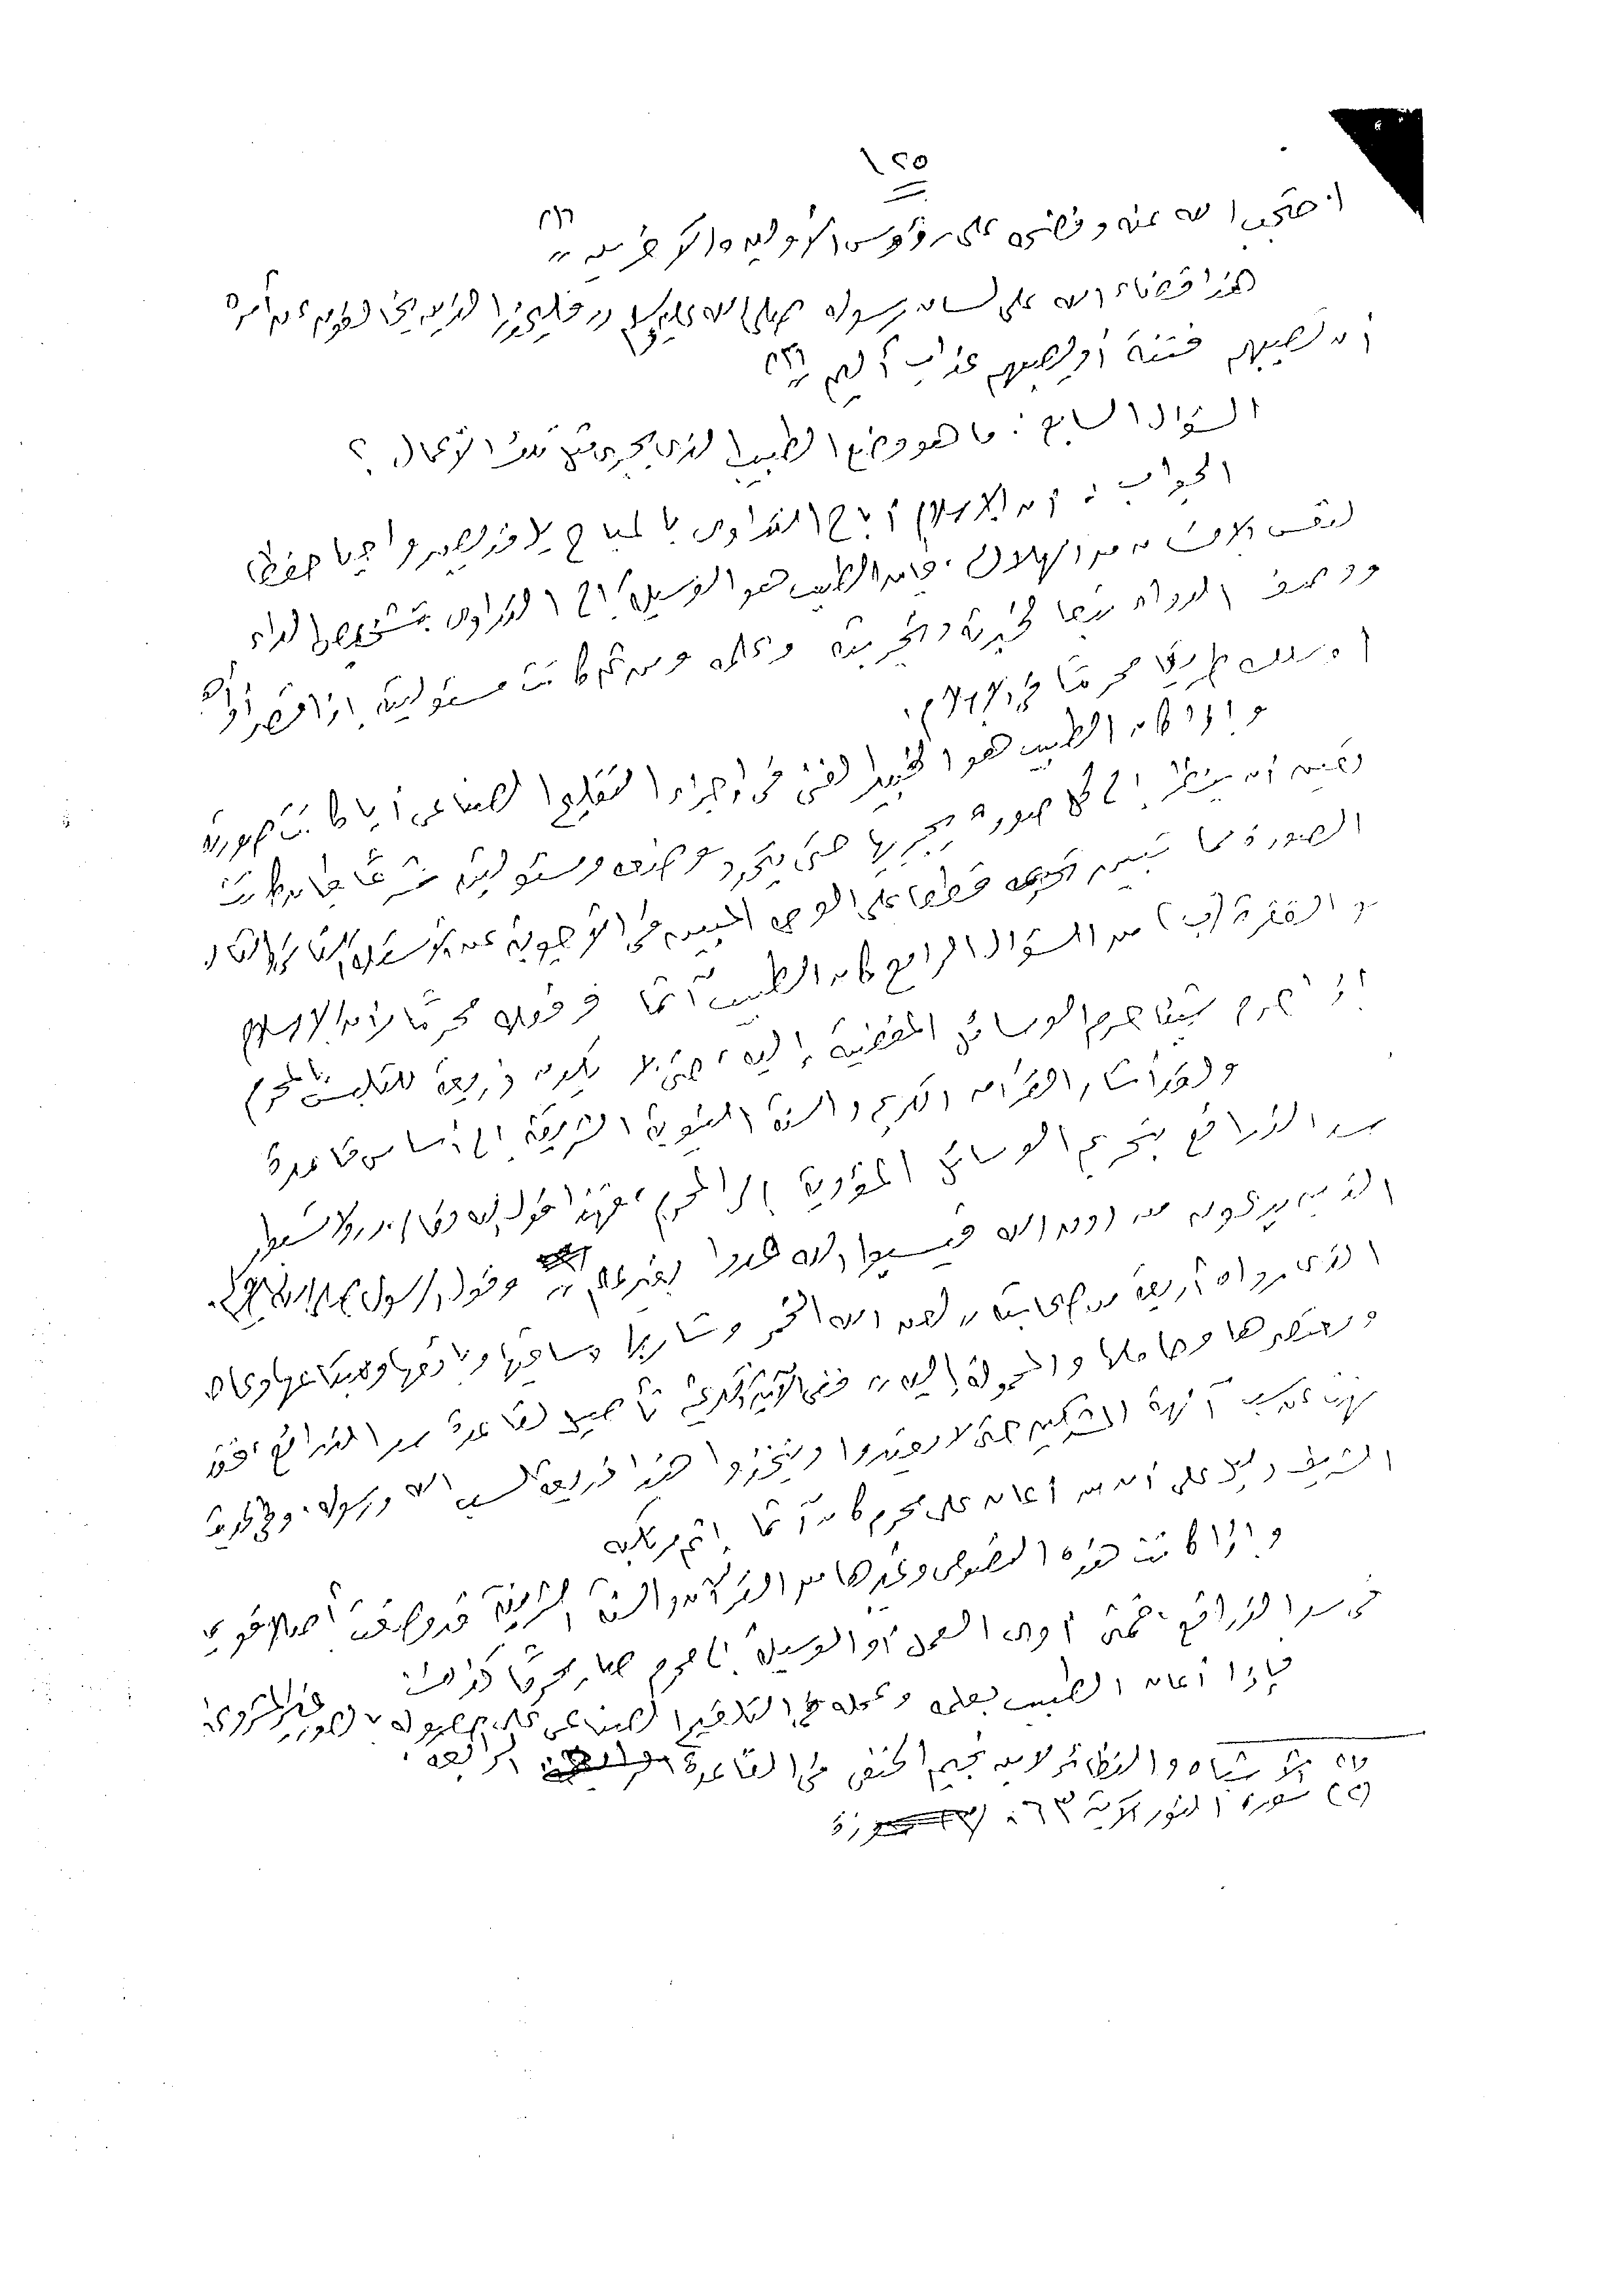 ١٢٥
احتجب الله عنه وفضحه على رؤوس الأولين والآخرين " (١)
هذا قضاء الله على لسان رسوله صلى الله عليه وسلم " فليحذر الذين يخالفون عن أمره
أن تصيبهم فتنة أو يصيبهم عذاب أليم " (٢)
السؤال السابع : ما هو وضع الطبيب الذى يجرى مثل تلك الأعمال ؟
الجواب : أن الإسلام أباح التداوى بالمباح بل قد يصير واجبا حفظا
لنفس الإنسان من الهلاك ، فإن الطبيب هو الوسيلة إلى التداوى بتشخيص الداء
ووصف الدواء تبعا لخبرته وتجربته وعلمه ومن ثم كانت مسئوليته إذا قصر أو
أو سلك طريقا محرما فى الإسلام .
وإذا كان الطبيب هو الخبير الفنى فى إجراء التلقيح الصناعى أيا كانت صورته
تعين أن ينظر إلى كل صورة يجريها حتى يتحدد وصفه ومسئوليته شرعًا فإن كانت
الصورة مما تبين تحريمه قطعا على الوجه المبين فى الأجوبة عن الأسئلة الثانى والثالث
و الفقرة (ب) من السؤال الرابع كان الطبيب آثما وفعله محرما لأن الإسلام
إذا حرم شيئا حرم الوسائل المفضية إليه ، حتى لا يكون ذريعة للتلبس بالمحرم
ولقد أشار القرآن الكريم والسنة النبوية الشريفة إلى أساس قاعدة
سد الذرائع بتحريم الوسائل المؤدية إلى المحرم ، فهذا قول الله تعالى " ولا تسبوا
الذين يدعون من دون الله فيسبوا الله عدوا بغير علم " وقول الرسول صلى الله عليه وسلم
الذى رواه أربعة من صحابته " لعن الله الخمر وشاربها وساقيها وبائعها ومبتاعها وعاصرها
ومعتصرها وحاملها والمحمولة إليه " ففى الآية الكريمة تأصيل لقاعدة سد الذرائع ، فقد
نهت عن سب آلهة المشركين حتى لا يعتدوا ويتخذوا هذا ذريعة لسب الله ورسوله ، وفى الحديث
الشريف دليل على أن من أعان على محرم كان آثما إثم مرتكبه
وإذا كانت هذه النصوص وغيرها من القرآن والسنة الشريفة قد وضعت أصلا قويا
فى سد الذرائع ، فمتى أدى العمل أو الوسيلة إلى محرم صار محرما كذلك
فإذا أعان الطبيب بعلمه وعمله فى التلقيح الصناعى على حصوله بالصور غير المشروعة
(١) الأشباه والنظائر لابن نجيم الحنفى فى القاعدة الرابعة .
(٢) سورة النور الآية ٦٣ .